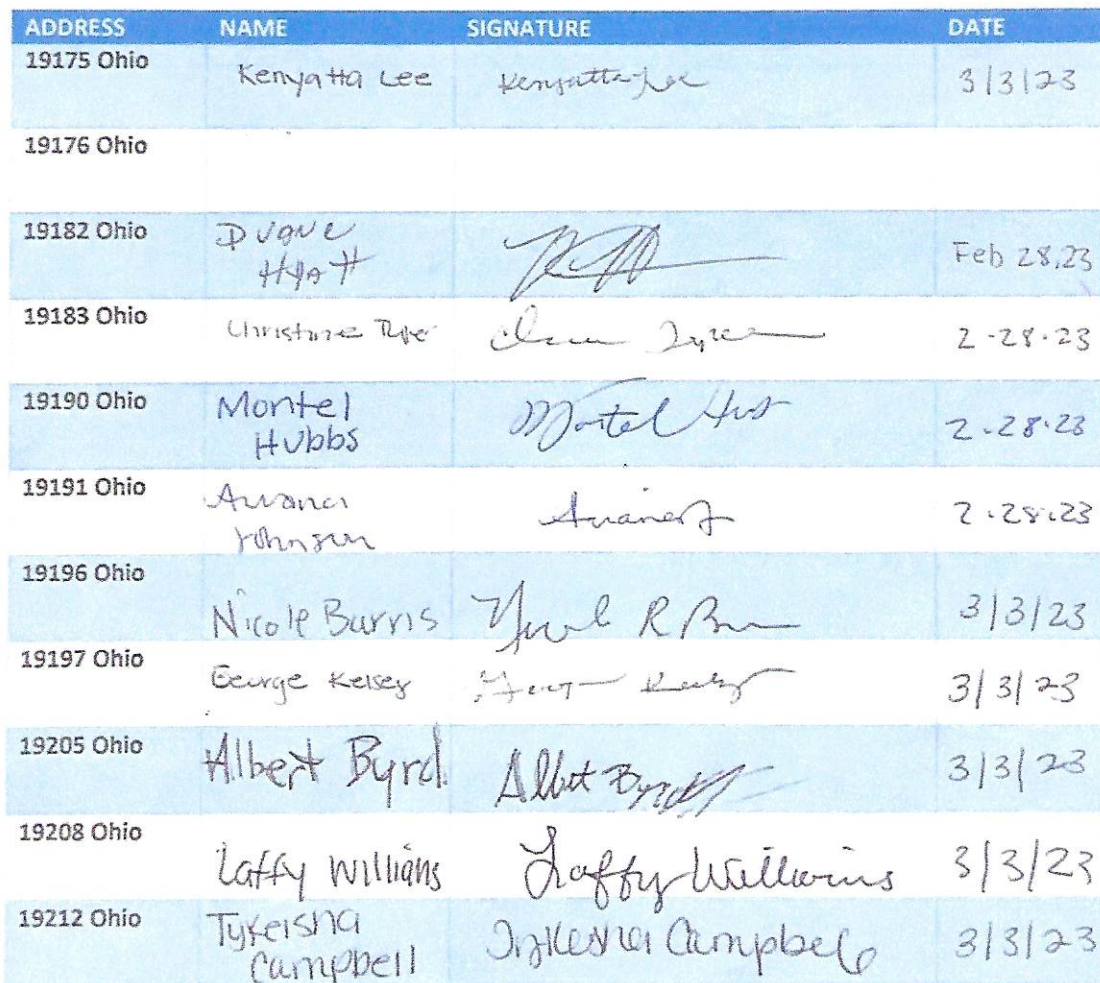 ADDRESS NAME SIGNATURE DATE
19175 Ohio
Kenyatta Lee Kenyatta Lee 3/3/23
19176 Ohio
19182 Ohio
Duane
Hyatt
Feb 28,23
19183 Ohio
Christine 2-28-23
19190 Ohio
Montel
Hubbs
Montel 2-28-23
19191 Ohio
Johnson
2-28-23
19196 Ohio
Nicole Burris R 3/3/23
19197 Ohio
George Kelsey 3/3/23
19205 Ohio
Albert Byrd Albert Byrd 3/3/23
19208 Ohio
Laffy Williams Laffy Williams 3/3/23
19212 Ohio
Tykeisha
Campbell
Tykeisha Campbell 3/3/23